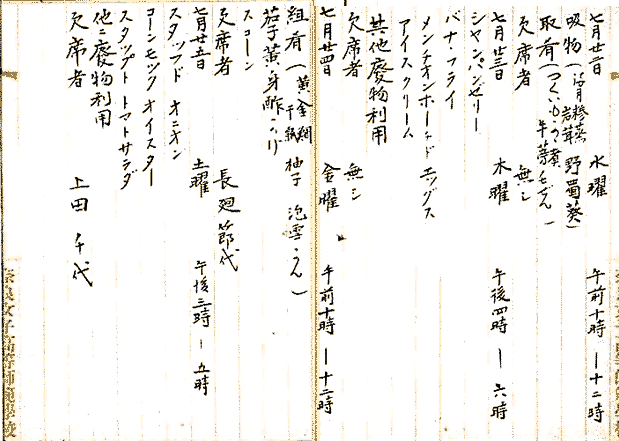 七月廿二日 水曜 午前十時―十二時
吸物(
岩茸 野蜀葵)
取肴(つくいも
欠席者 無シ
七月廿三日 木曜 午後四時―六時
シャンパンゼリー
バナナフライ
メンチオンホードエッグス
アイスクリーム
其他廃物利用
欠席者 無シ
七月廿四日 金曜 午前十時―十二時
組肴(黄金網 干瓢 柚子 泡雪かん)
茄子黄身酢
スコーン
欠席者 長廻節代
七月廿五日 土曜 午後三時―五時
スタッフドオニオン
コーンモックオイスター
スタッフトトマトサラダ
他ニ廃物利用
欠席者 上田千代
奈良女子高等師範學校